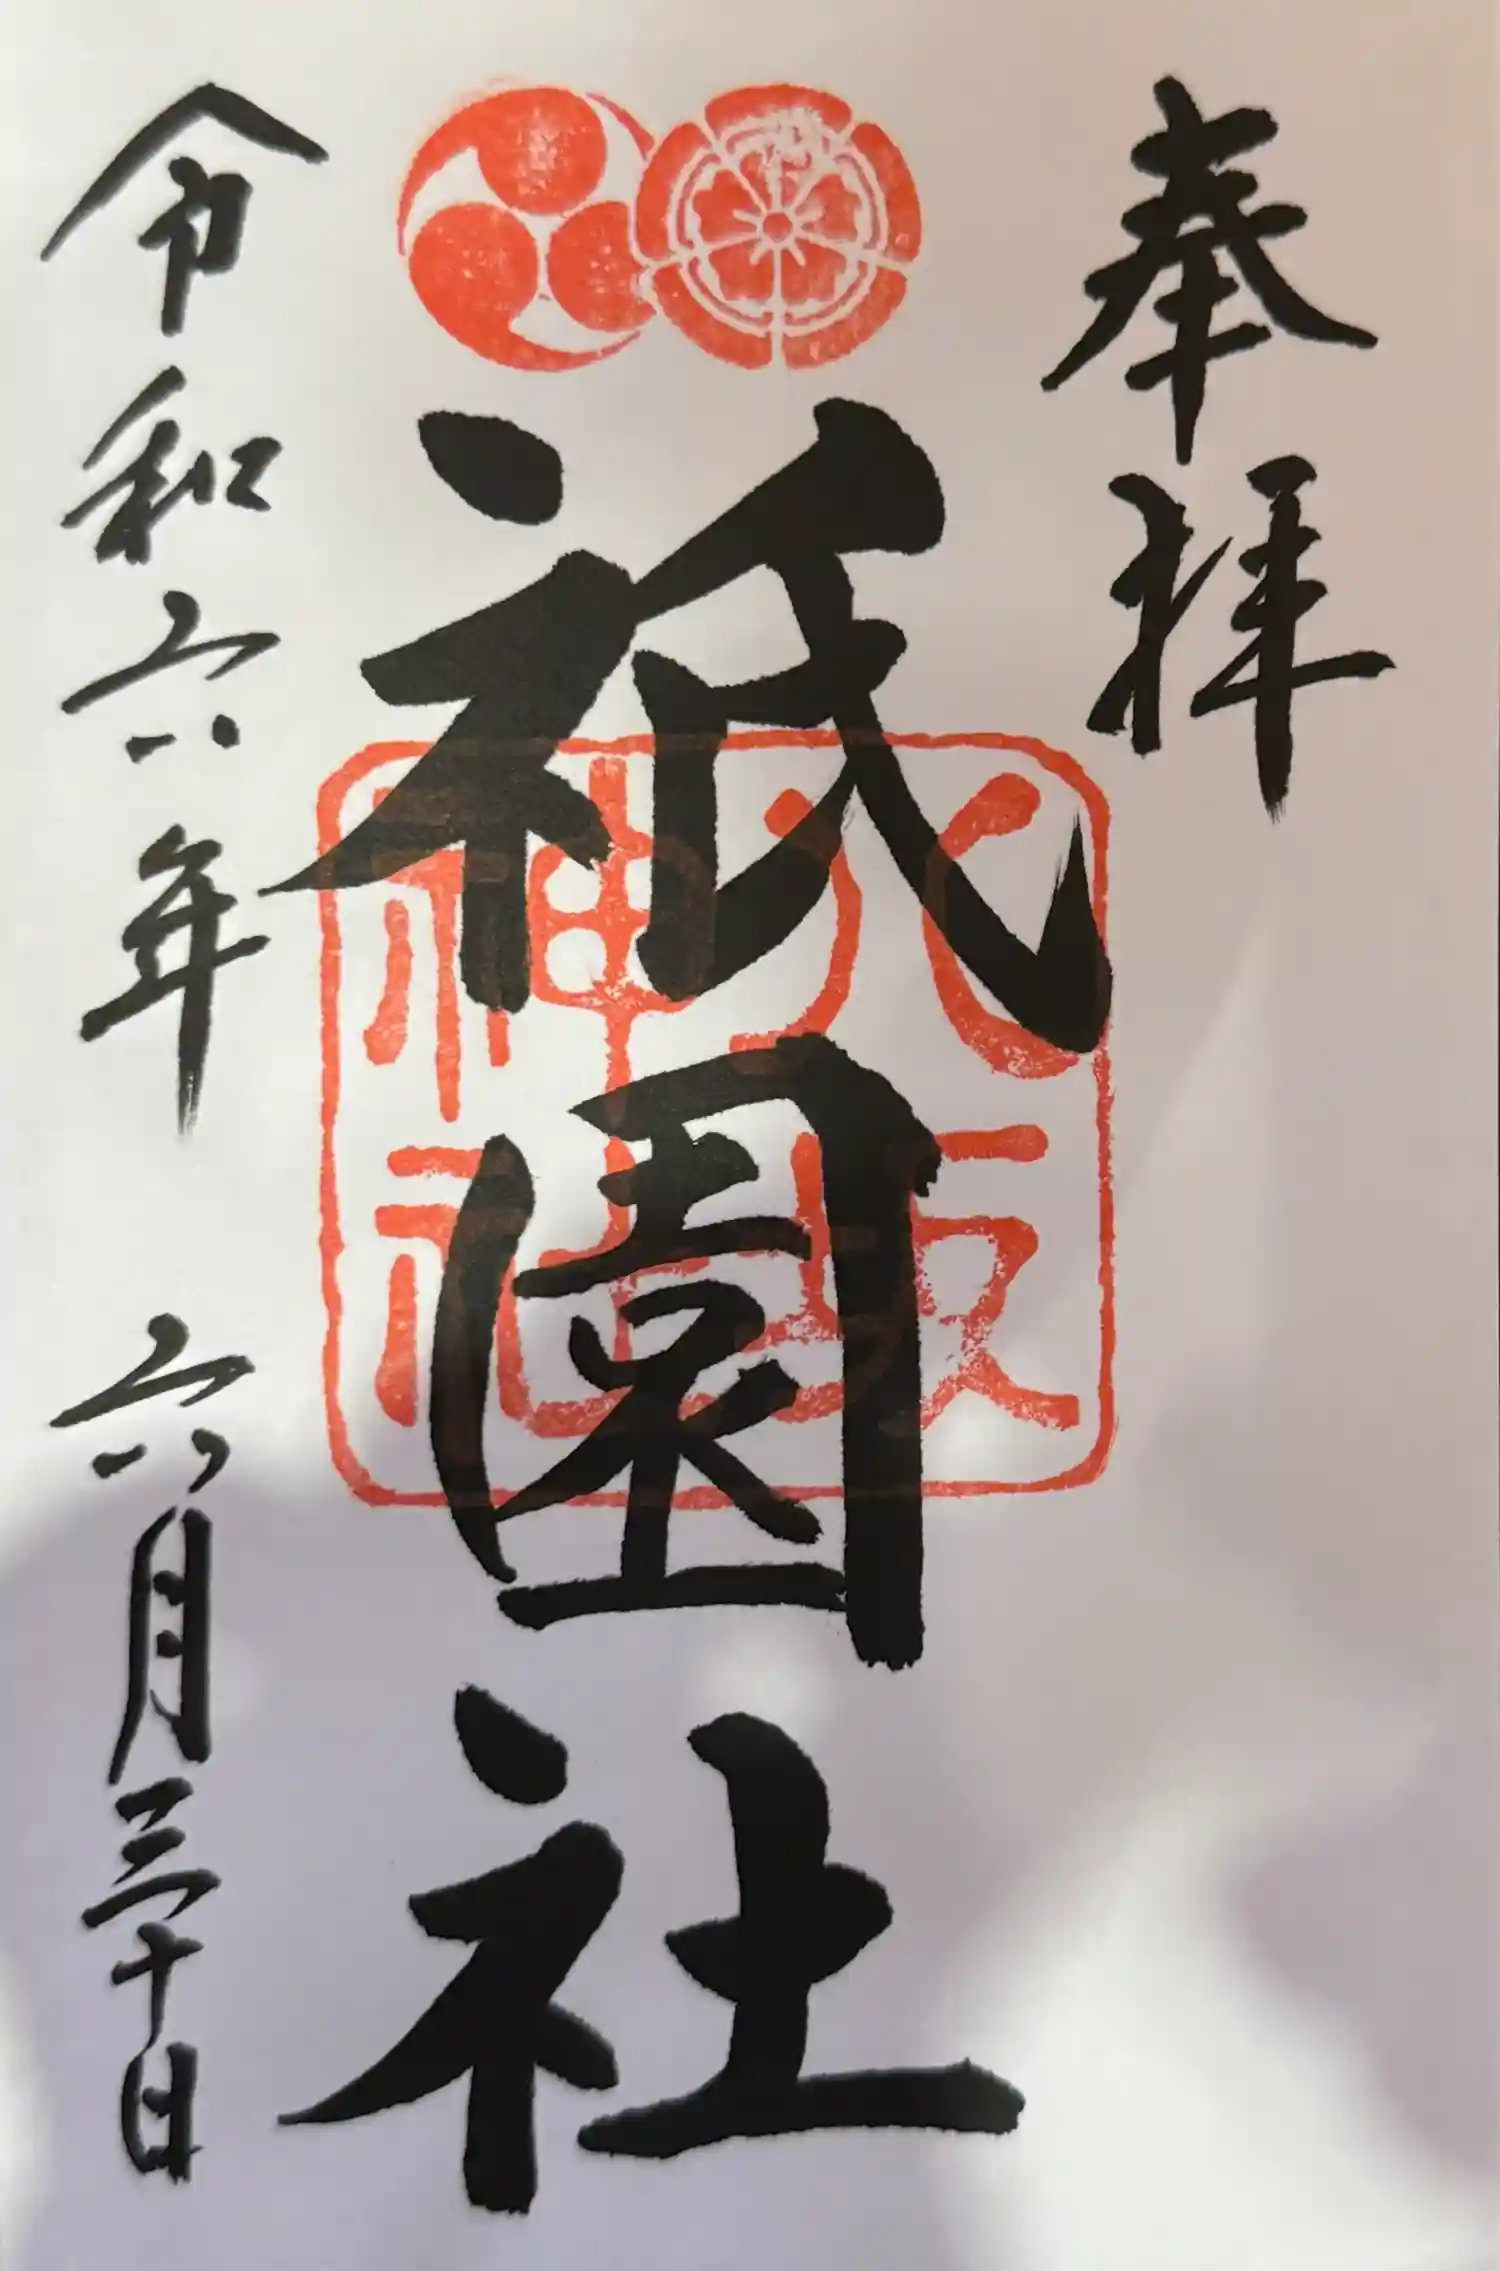 奉拝
祇園社
八坂神社
令和六年 六月三十日